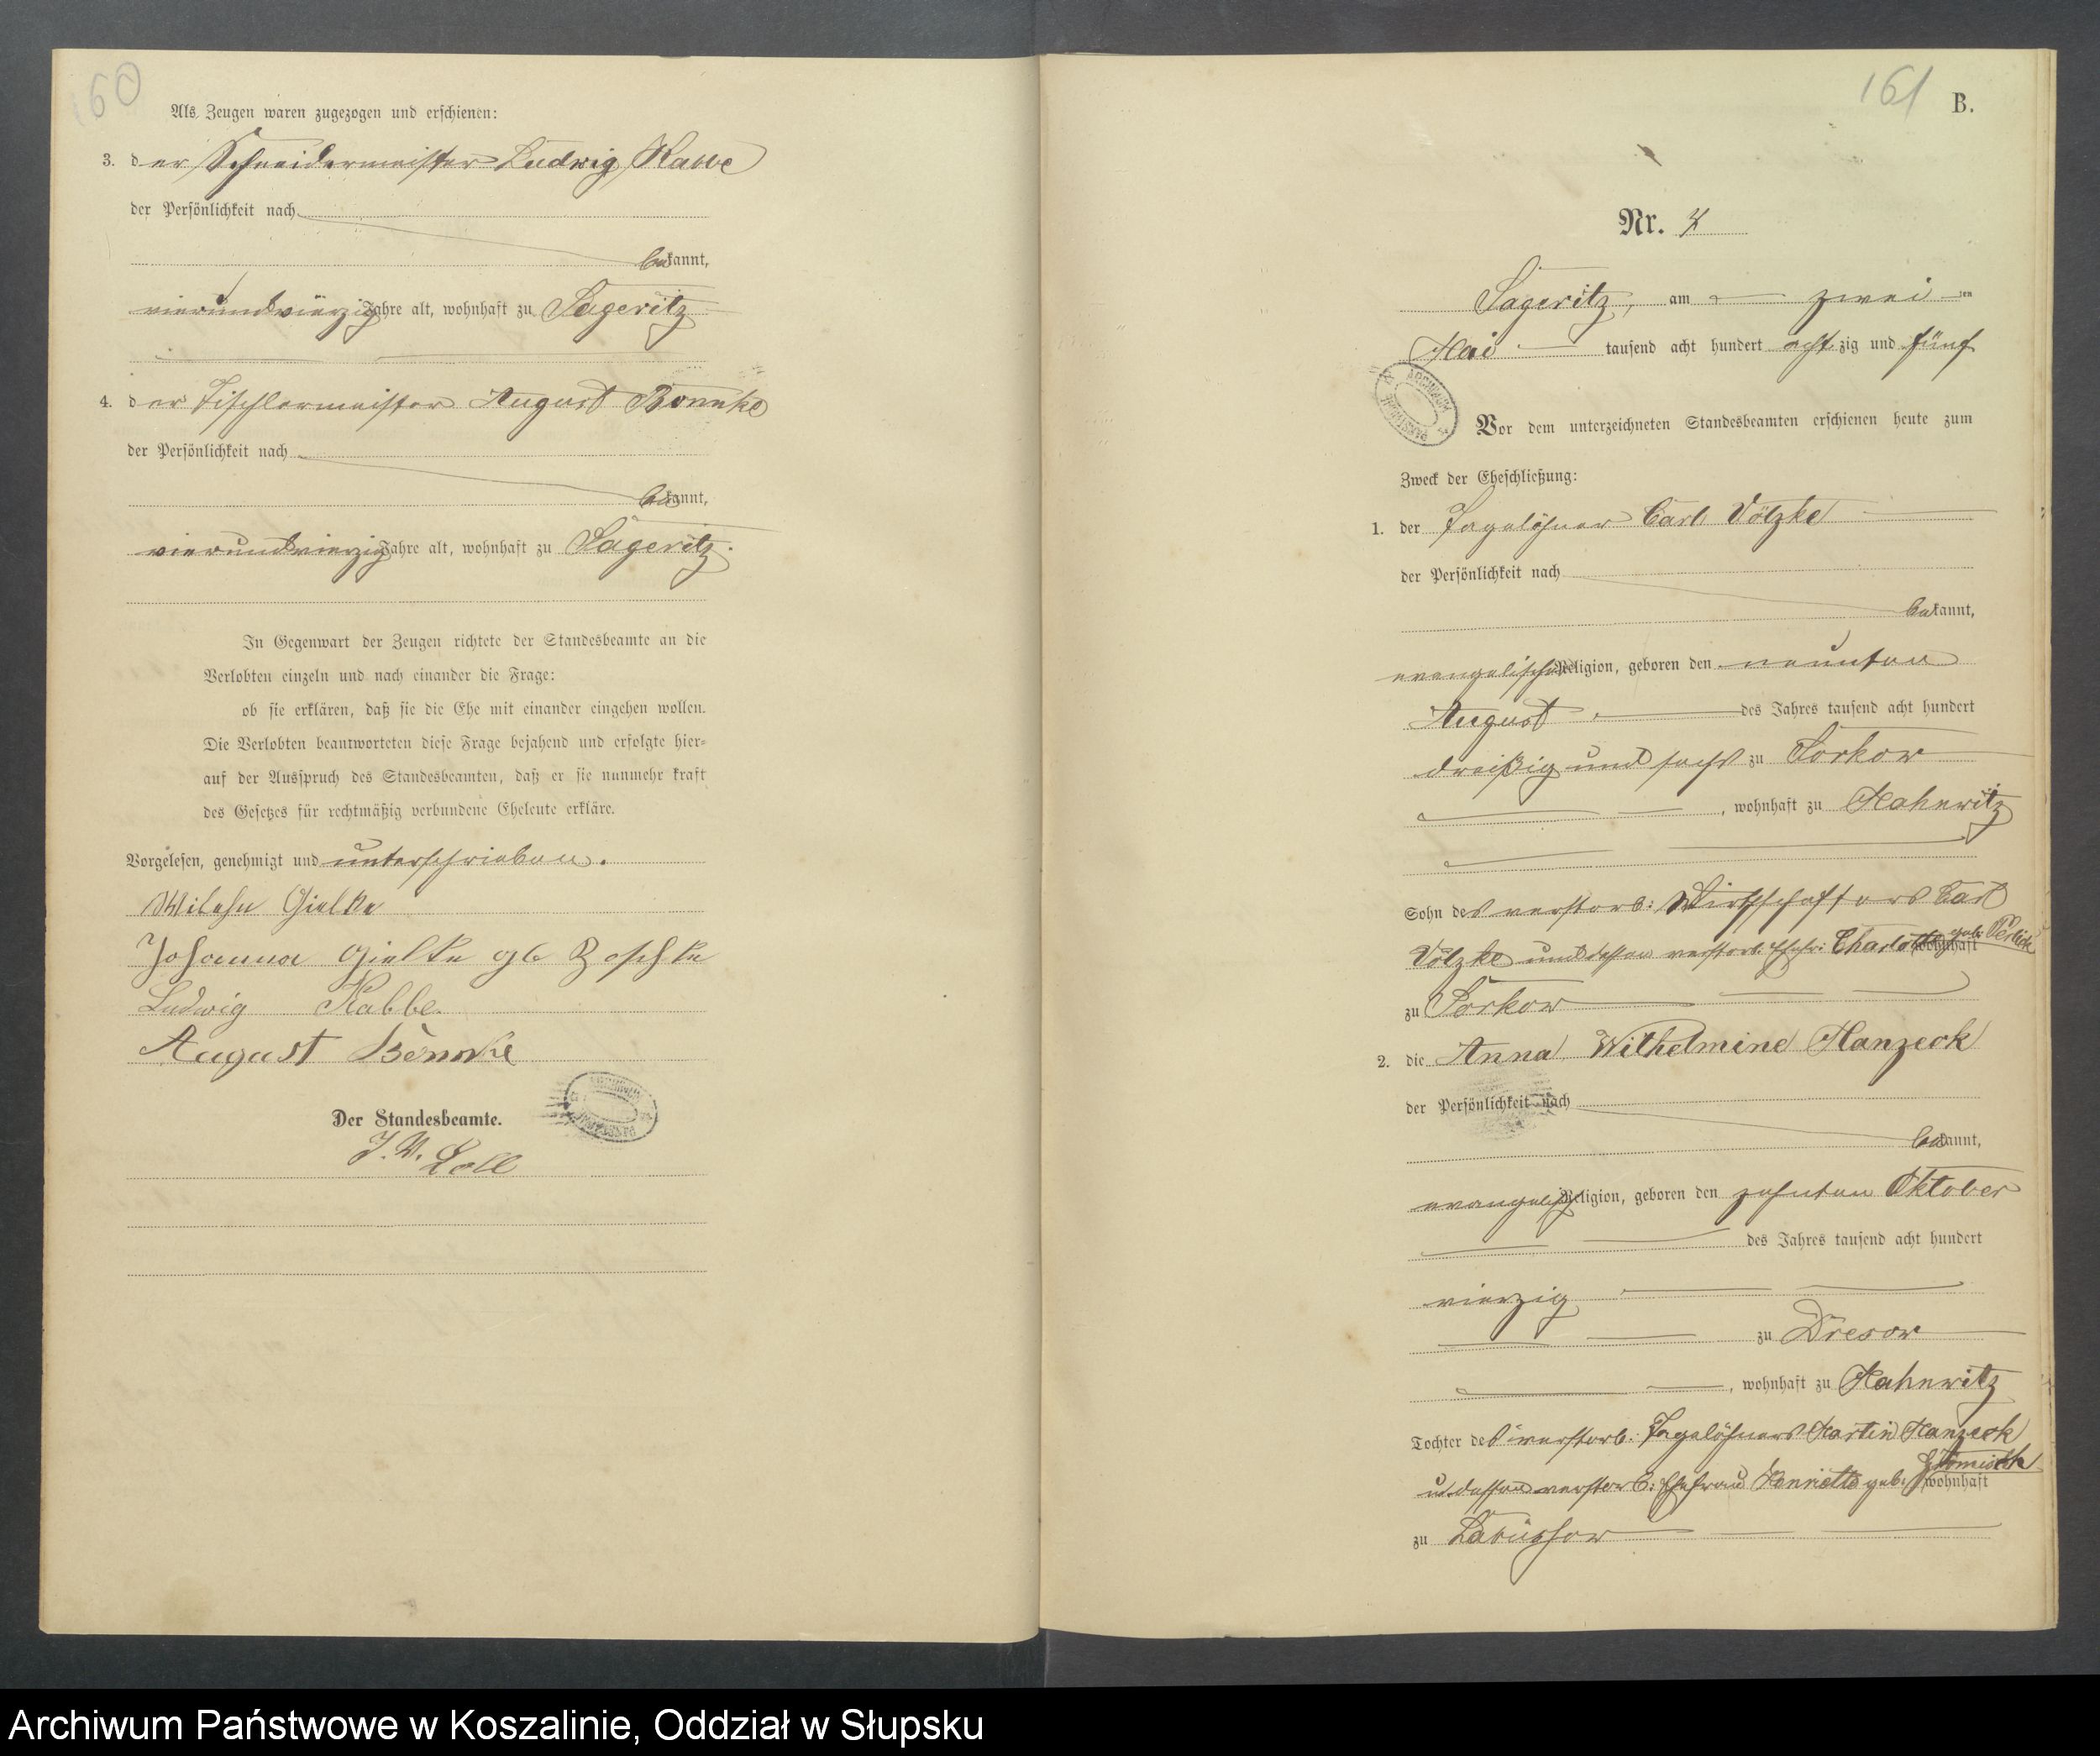 160
Als Zeugen waren zugezogen und erschienen:
3. der Schneidermeister Ludwig Rabbe
der Persönlichkeit nach
bekannt,
vierundvierzig Jahre alt, wohnhaft zu Sageritz
4. der Tischlermeister August Bönnke
der Persönlichkeit nach
bekannt,
vierundvierzig Jahre alt, wohnhaft zu Sageritz.
In Gegenwart der Zeugen richtete der Standesbeamte an die
Verlobten einzeln und nach einander die Frage:
ob sie erklären, daß sie die Ehe mit einander eingehen wollen.
Die Verlobten beantworteten diese Frage bejahend und erfolgte hier-
auf der Ausspruch des Standesbeamten, daß er sie nunmehr kraft
des Gesetzes für rechtmäßig verbundene Eheleute erkläre.
Vorgelesen, genehmigt und unterschrieben.
Gielke
Johanna Gielke gb
Ludwig Rabbe
August Bönnke
Der Standesbeamte.
J. V. Loll
161
B.
Nr. 4
Sageritz, am zwei ten
Mai tausend acht hundert achtzig und fünf
Vor dem unterzeichneten Standesbeamten erschienen heute zum
Zweck der Eheschließung:
1. der Tagelöhner Carl Völzke
der Persönlichkeit nach
bekannt,
evangelischer Religion, geboren den neunten
August des Jahres tausend acht hundert
dreißig und sechs zu Sorkow
, wohnhaft zu Mahnwitz
Sohn des verstorb: Wirthschafters Carl
Völzke und dessen verstorb. Ehefr: Charlotte geb. Perlick wohnhaft
zu Sorkow
2. die Anna Wilhelmine Manzeck
der Persönlichkeit nach
bekannt,
evangelisch Religion, geboren den zehnten Oktober
des Jahres tausend acht hundert
vierzig
zu Dresow
, wohnhaft zu Mahnwitz
Tochter des verstorb. Tagelöhners Martin Manzeck
u. dessen verstorb: Ehefrau Henriette geb. wohnhaft
zu Labüssow
ARCHIWUM
ARCHIWUM
Archiwum Państwowe w Koszalinie, Oddział w Słupsku